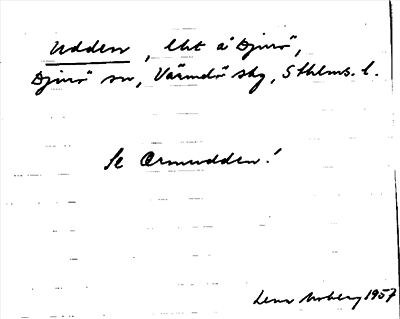 Udden, lht å Djurö,
Djurö sn, Värmdö skg, Sthlms. l.
Se Ormudden!
Lena Moberg 1957